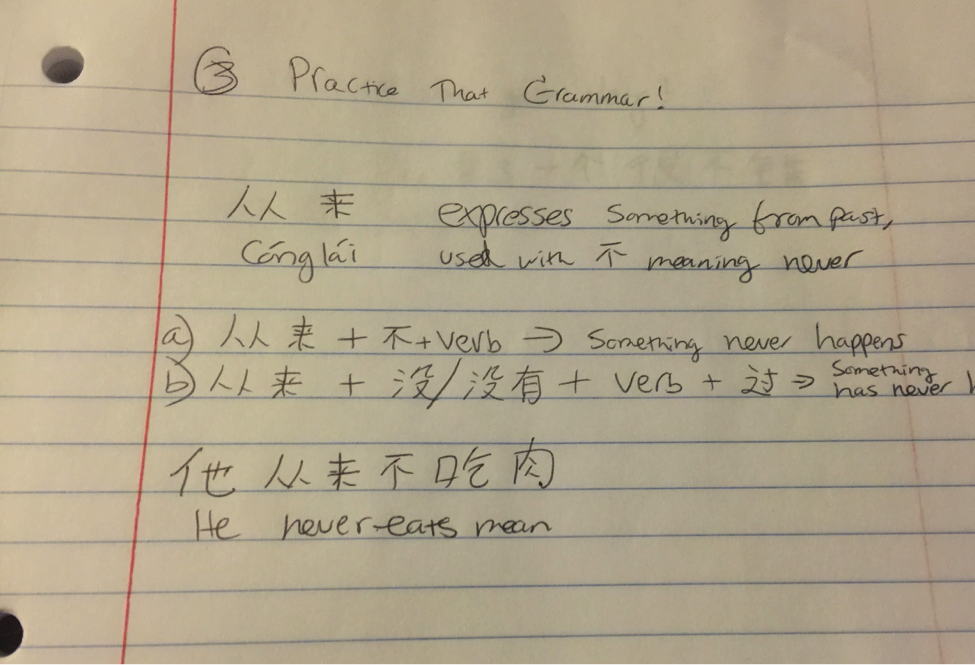 ③ Practice That Grammar!
从来 expresses something from past,
Cóng lái used with 不 meaning never
a) 从来 + 不 + verb → Something never happens
b) 从来 + 没/没有 + verb + 过 ⇒ Something has never
他从来不吃肉
He never eats mean